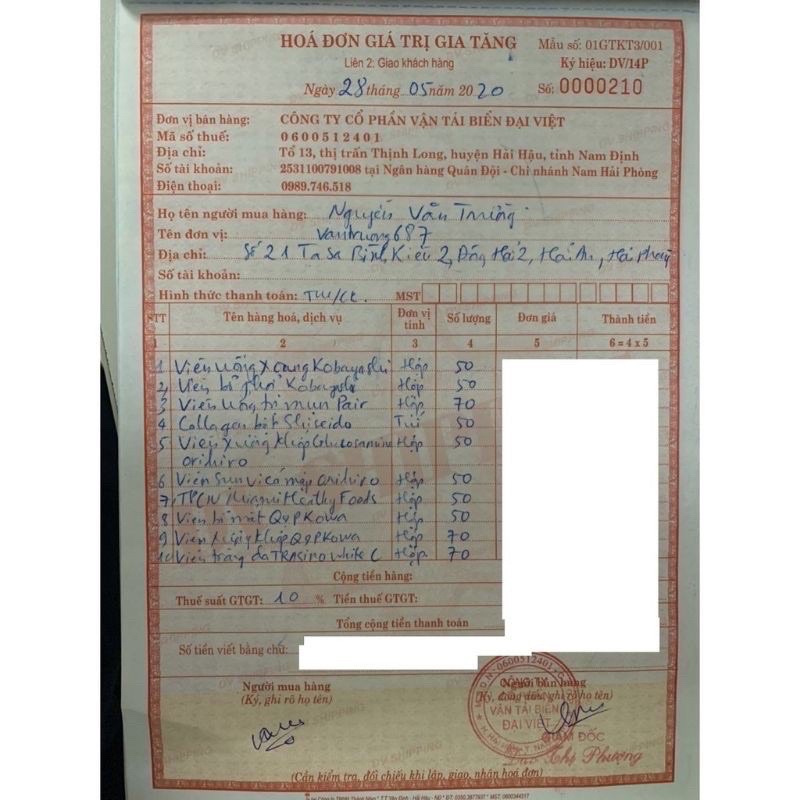 HOÁ ĐƠN GIÁ TRỊ GIA TĂNG
Mẫu số: 01GTKT3/001
Liên 2: Giao khách hàng
Ký hiệu: DV/14P
Ngày 28 tháng 05 năm 2020
Số: 0000210
Đơn vị bán hàng: CÔNG TY CỔ PHẦN VẬN TẢI BIỂN ĐẠI VIỆT
Mã số thuế: 0600512401
Địa chỉ: Tổ 13, thị trấn Thịnh Long, huyện Hải Hậu, tỉnh Nam Định
Số tài khoản: 2531100791008 tại Ngân hàng Quân Đội - Chi nhánh Nam Hải Phòng
Điện thoại: 0989.746.518
Họ tên người mua hàng: Nguyễn Văn Trường
Tên đơn vị: Vantruong687
Địa chỉ: Số 21 Ta Sa Bình Kiều 2, Đông Hải 2, Hải An, Hải Phòng
Số tài khoản:
Hình thức thanh toán: TM/CK. MST
STT Tên hàng hoá, dịch vụ Đơn vị tính Số lượng Đơn giá Thành tiền
1 2 3 4 5 6 = 4 x 5
1 Viên uống Kobayashi Hộp 50
2 Viên bổ phổi Kobayashi Hộp 50
3 Viên uống trị mụn Pair Hộp 70
4 Collagen bột Shiseido Túi 50
5 Viên xương khớp Glucosamine Hộp 50
orihiro
6 Viên sụn vi cá mập orihiro Hộp 50
7 TPCN Healthy Foods Hộp 50
8 Viên bổ mắt Q&P Kowa Hộp 50
9 Viên xương khớp Q&P Kowa Hộp 70
10 Viên trắng da TRAsino White C Hộp 70
Cộng tiền hàng:
Thuế suất GTGT: 10 % Tiền thuế GTGT:
Tổng cộng tiền thanh toán
Số tiền viết bằng chữ:
Người mua hàng
Người bán hàng
(Ký, ghi rõ họ tên)
(Ký, đóng dấu, ghi rõ họ tên)
0600512401
CÔNG TY
VẬN TẢI BIỂN
ĐẠI VIỆT
GIÁM ĐỐC
Thị Phượng
(Cần kiểm tra, đối chiếu khi lập, giao, nhận hoá đơn)